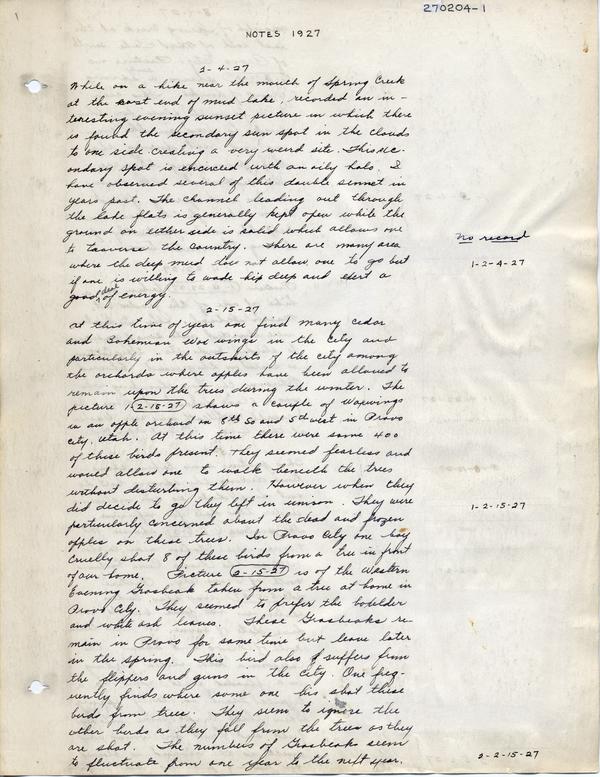 270204-1
NOTES 1927
2-4-27
While on a hike near the mouth of Spring Creek
at the east end of mud lake, recorded an in-
teresting evening sunset picture in which there
is found the secondary sun spot in the clouds
to one side creating a very weird site. This sec-
ondary spot is encircled with an oily halo. I
have observed several of this double sunset in
years past. The channel leading out through
the lake flats is generally kept open while the
ground on either side is solid which allows one
to traverse the country. There are many area
where the deep mud does not allow one to go but
if one is willing to wade hip deep and exert a
good deal of energy.
No record
1-2-4-27
2-15-27
At this time of year one find many cedar
and Bohemian Wax wings in the city and
particularly in the outskirts of the city among
the orchards where apples have been allowed to
remain upon the trees during the winter. The
picture 1(2-15-27) shows a couple of Waxwings
in an apple orchard on 8th So and 5th west in Provo
City, Utah. At this time there were some 400
of these birds present. They seemed fearless and
would allow one to walk beneath the trees
without disturbing them. However when they
did decide to go they left in unison. They were
particularly concerned about the dead and frozen
apples on these trees. In Provo City one boy
cruelly shot 8 of these birds from a tree in front
of our home. Picture (2-15-27) is of the Western
Evening Grosbeak taken from a tree at home in
Provo City. They seemed to prefer the boxelder
and white ash leaves. These Grosbeaks re-
main in Provo for some time but leave later
in the spring. This bird also suffers from
the flippers and guns in the city. One freq-
uently finds where some one has shot these
birds from trees. They seem to ignore the
other birds as they fall from the trees as they
are shot. The numbers of Grosbeaks seem
to fluctuate from one year to the next year.
1-2-15-27
2-2-15-27